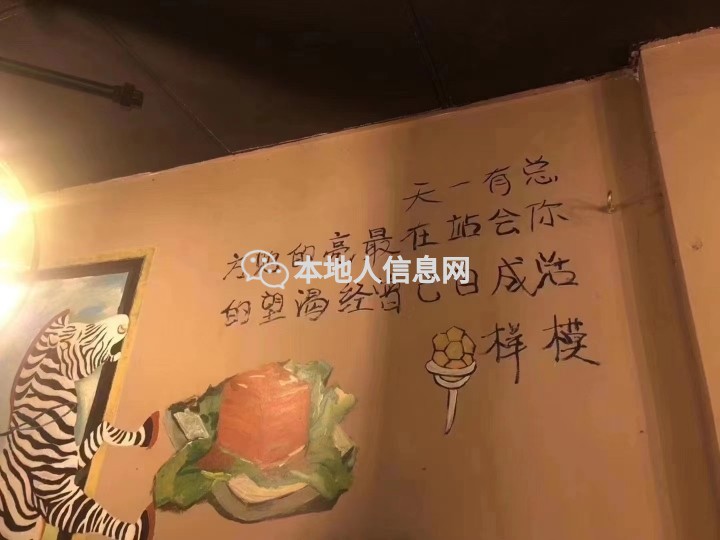 总有一天
你会站在最亮的地方
活成自己曾经渴望的
模样
本地人信息网